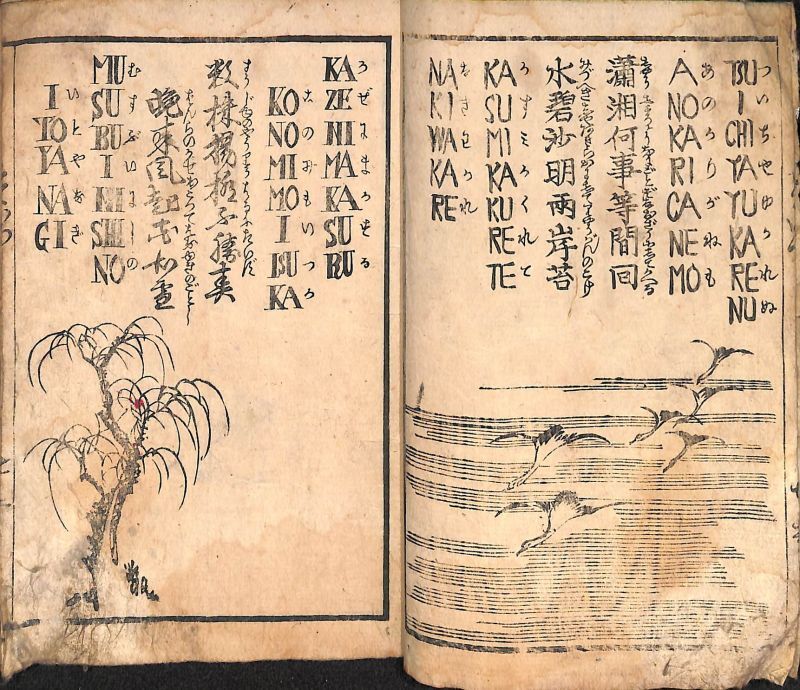 TSU I CHI YA YU KA RE NU
ついちやゆかれぬ
A NO KA RI CA NE MO
あのかりがねも
瀟湘何事等間回
水碧沙明兩岸苔
KA SU MI KA KU RE TE
かすミかくれて
NA KI WA KA RE
なきわかれ
KA ZE NI MA KA SU RU
かぜにまかする
KO NO MI MO I TSU KA
このみもいつか
數株楊柳不勝春
晩來風起花如雪
MU SU BU I NI SHI NO
むすぶいにしの
I TO YA NA GI
いとやなぎ